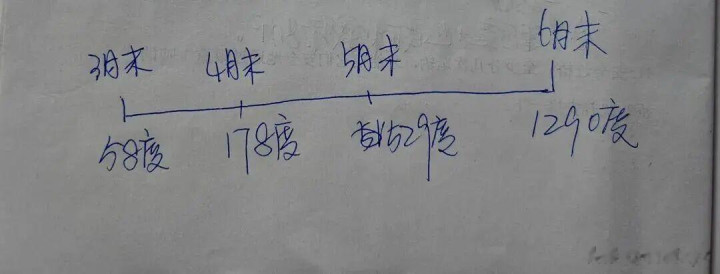 3月末 4月末 5月末 6月末
58度 178度 529度 1290度